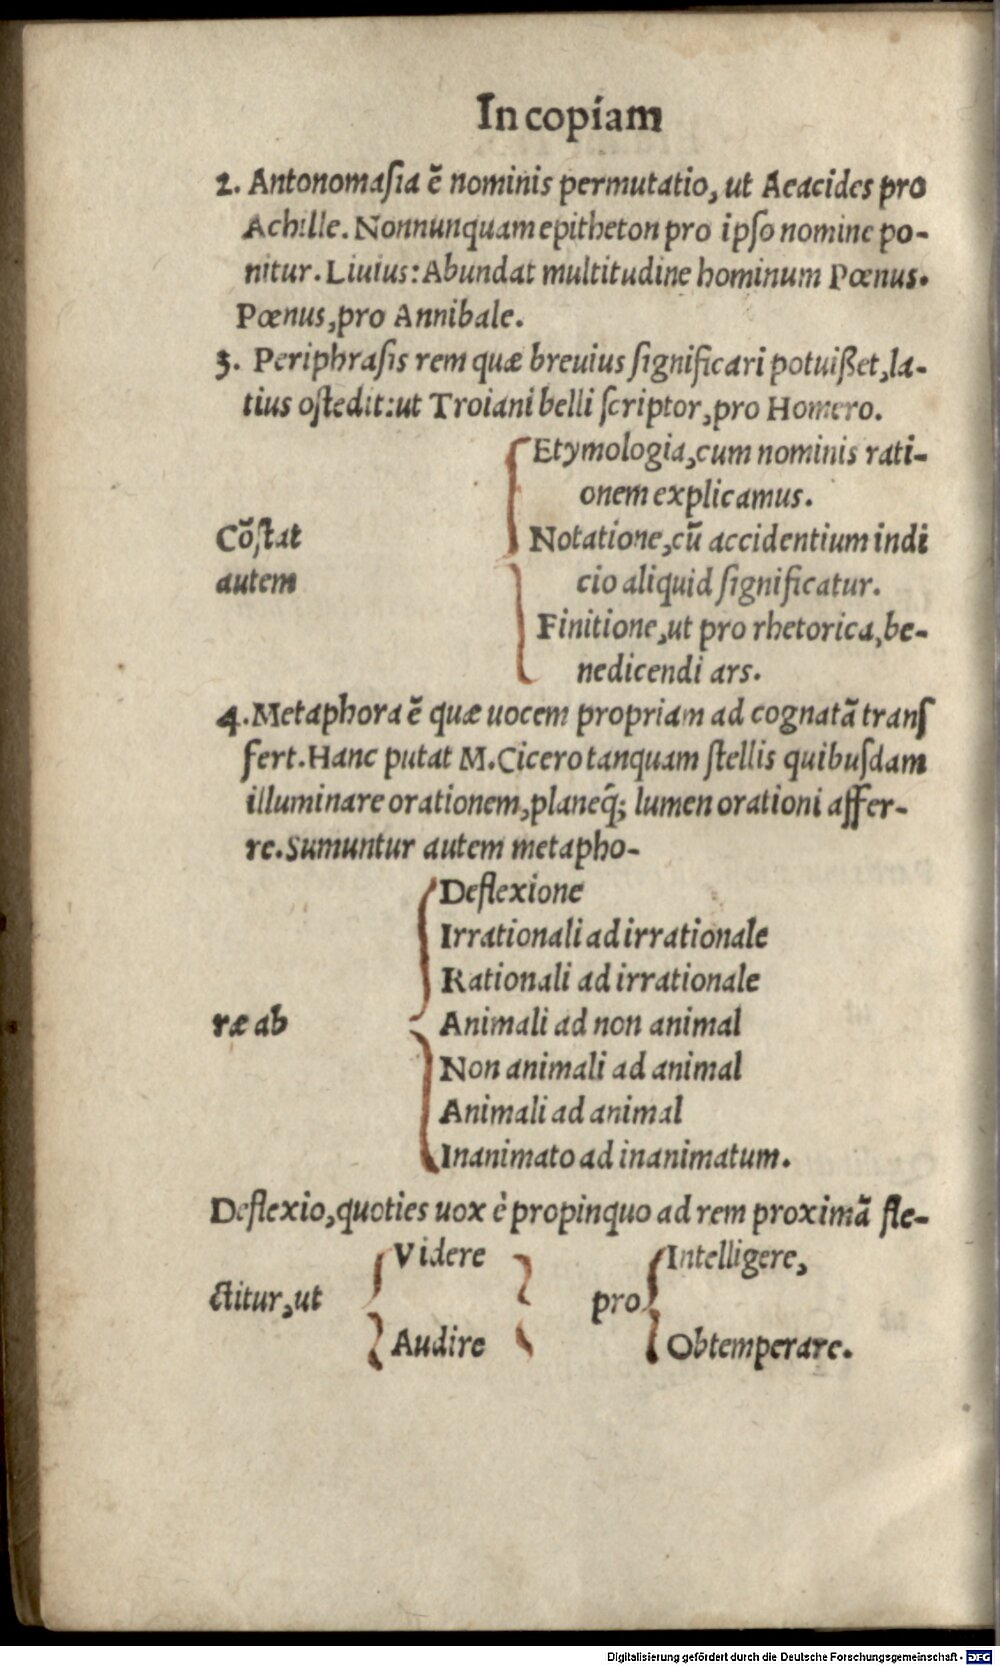 In copiam
2. Antonomaſia ē nominis permutatio, ut Aeacides pro
Achille. Nonnunquam epitheton pro ipſo nomine po-
nitur. Liuius: Abundat multitudine hominum Pœnus.
Pœnus, pro Annibale.
3. Periphraſis rem quæ breuius ſignificari potuiſſet, la-
tius oſtēdit: ut Troiani belli ſcriptor, pro Homero.
Etymologia, cum nominis rati-
onem explicamus.
Cōſtat
autem
Notatione, cū accidentium indi
cio aliquid ſignificatur.
Finitione, ut pro rhetorica, be-
nedicendi ars.
4. Metaphora ē quæ uocem propriam ad cognatā tranſ
fert. Hanc putat M. Cicero tanquam ſtellis quibuſdam
illuminare orationem, planeq̃; lumen orationi affer-
re. Sumuntur autem metapho-
ræ ab
Deflexione
Irrationali ad irrationale
Rationali ad irrationale
Animali ad non animal
Non animali ad animal
Animali ad animal
Inanimato ad inanimatum.
Deflexio, quoties uox è propinquo ad rem proximā fle-
ctitur, ut
Videre
Audire
pro
Intelligere,
Obtemperare.
Digitalisierung gefördert durch die Deutsche Forschungsgemeinschaft - DFG